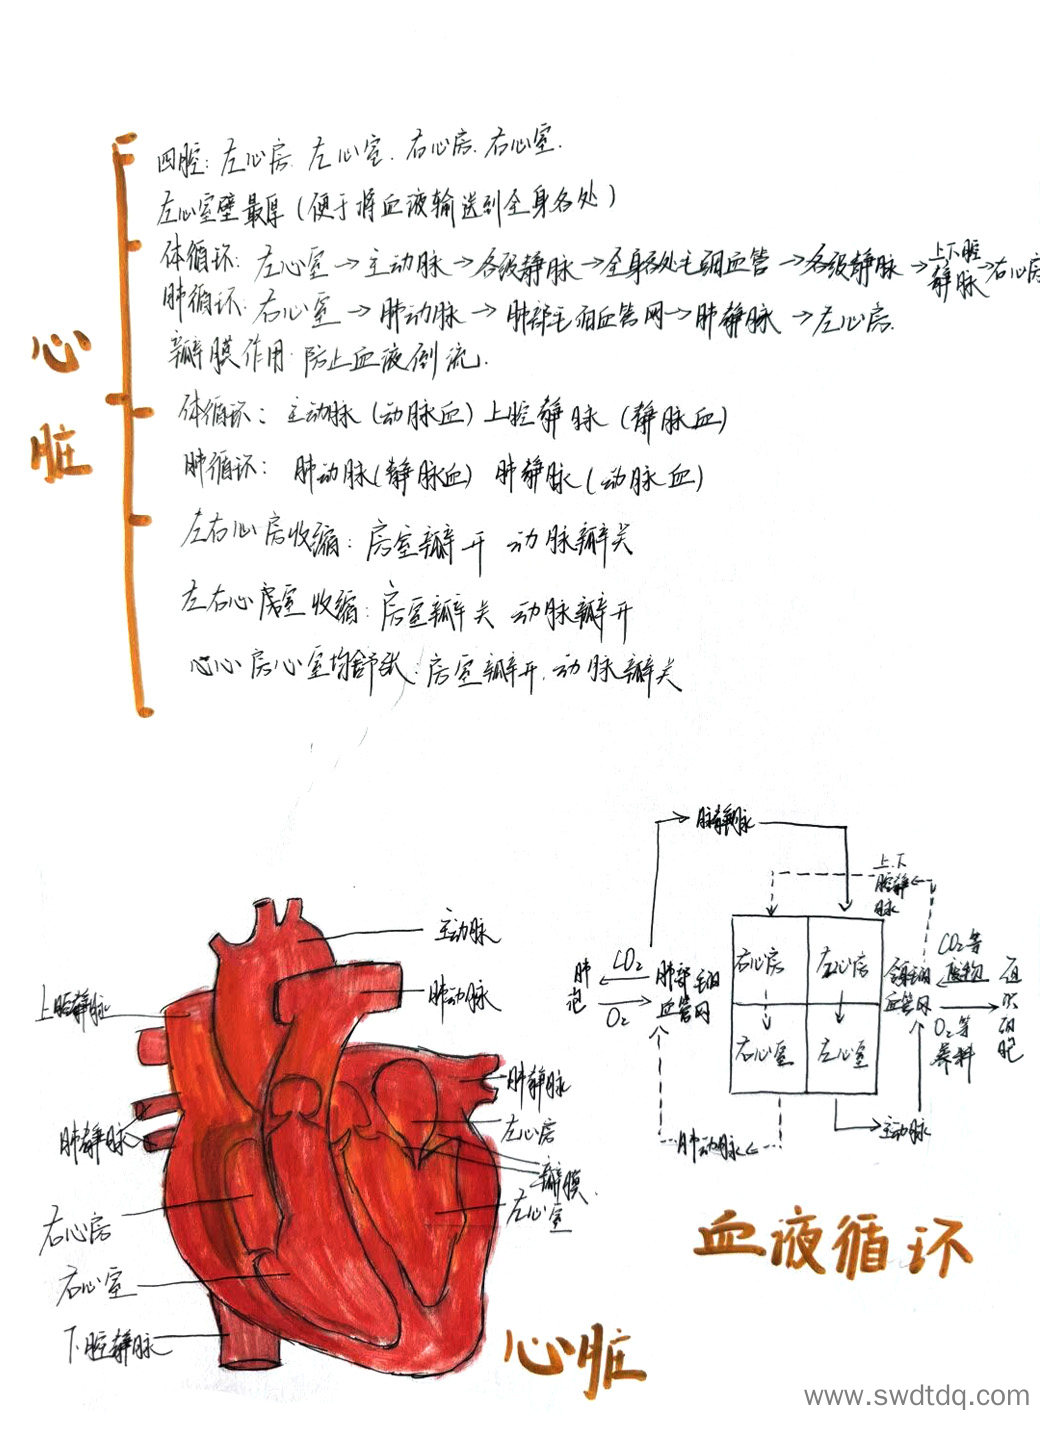 心脏
四腔：左心房 左心室．右心房．右心室．
左心室壁最厚（便于将血液输送到全身各处）
体循环：左心室→主动脉→各级静脉→全身各处毛细血管→各级静脉→上下腔静脉→右心房
肺循环：右心室→肺动脉→肺部毛细血管网→肺静脉→左心房．
瓣膜作用：防止血液倒流．
体循环：主动脉（动脉血）上腔静脉（静脉血）
肺循环：肺动脉（静脉血）肺静脉（动脉血）
左右心房收缩：房室瓣开 动脉瓣关
左右心室收缩：房室瓣关 动脉瓣开
心房心室均舒张：房室瓣开．动脉瓣关
主动脉
肺动脉
上腔静脉
肺静脉
肺静脉
左心房
瓣膜．
左心室
右心房
右心室
下腔静脉
心脏
肺静脉
上．下
腔静
脉
右心房
左心房
右心室
左心室
肺泡
CO2
O2
肺部毛细
血管网
血管网
CO2等
废物
O2等
养料
主动脉
肺动脉
血液循环
www.swdtdq.com